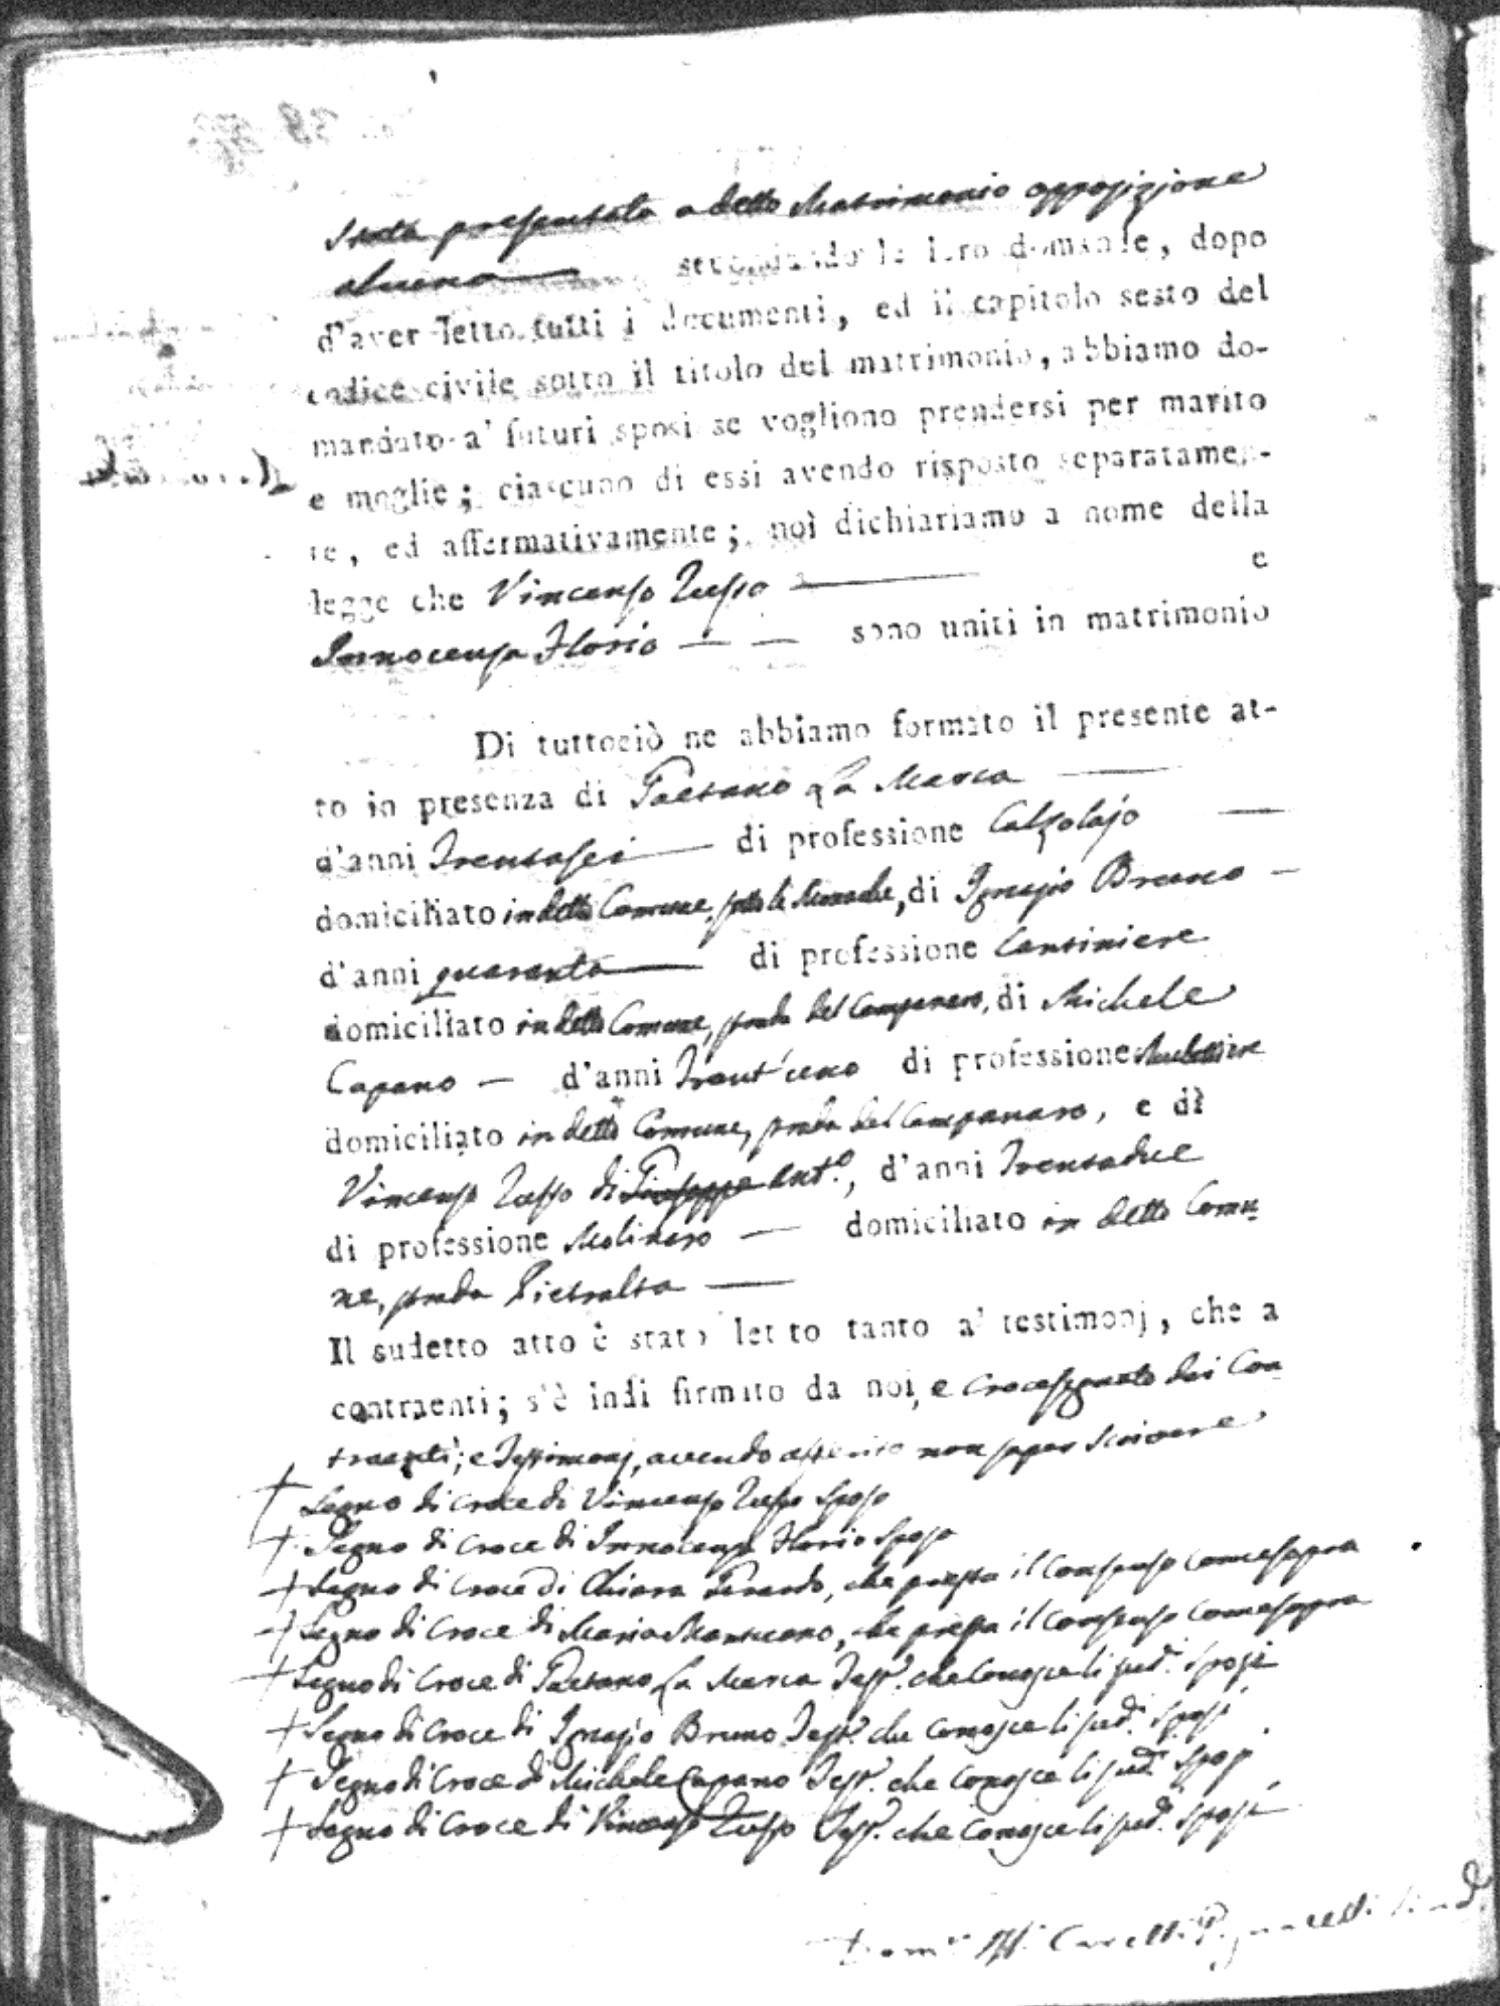 stata presentata a detto Matrimonio opposizione
alcuna secondando le loro domande, dopo
d'aver letto tutti i documenti, ed il capitolo sesto del
codice civile sotto il titolo del matrimonio, abbiamo do-
mandato a' futuri sposi se vogliono prendersi per marito
e moglie; ciascuno di essi avendo risposto separatamen-
te, ed affermativamente; noi dichiariamo a nome della
legge che Vincenzo Russo e
Innocenza Florio — — sono uniti in matrimonio
Di tuttociò ne abbiamo formato il presente at-
to in presenza di Gaetano La Marca —
d'anni Trentasei — di professione Calzolajo —
domiciliato in detto Comune, sotto le Monache, di Ignazio Bruno —
d'anni quaranta — di professione Cantiniere
domiciliato in detto Comune, strada del Campanaro, di Michele
Capano — d'anni Trent'uno di professione
domiciliato in detto Comune, strada del Campanaro, e di
Vincenzo Russo di Giuseppe Ant.o, d'anni Trentadue
di professione Molinaro — domiciliato in detto Comu-
ne, strada Pietralta —
Il sudetto atto è stato letto tanto a' testimonj, che a
contraenti; s'è indi firmato da noi, e crocesegnato dai Con
traenti, e Testimonj, avendo asserito non saper scrivere
+ Segno di Croce di Vincenzo Russo Sposo
+ Segno di Croce di Innocenza Florio Sposa
+ Segno di Croce di Chiara, che presta il Consenso comesopra
+ Segno di Croce di Maria, che presta il Consenso comesopra
+ Segno di Croce di Gaetano La Marca Test. che Conosce li sud. Sposi
+ Segno di Croce di Ignazio Bruno Test. che Conosce li sud. Sposi
+ Segno di Croce di Michele Capano Test. che Conosce li sud. Sposi
+ Segno di Croce di Vincenzo Russo Test. che Conosce li sud. Sposi